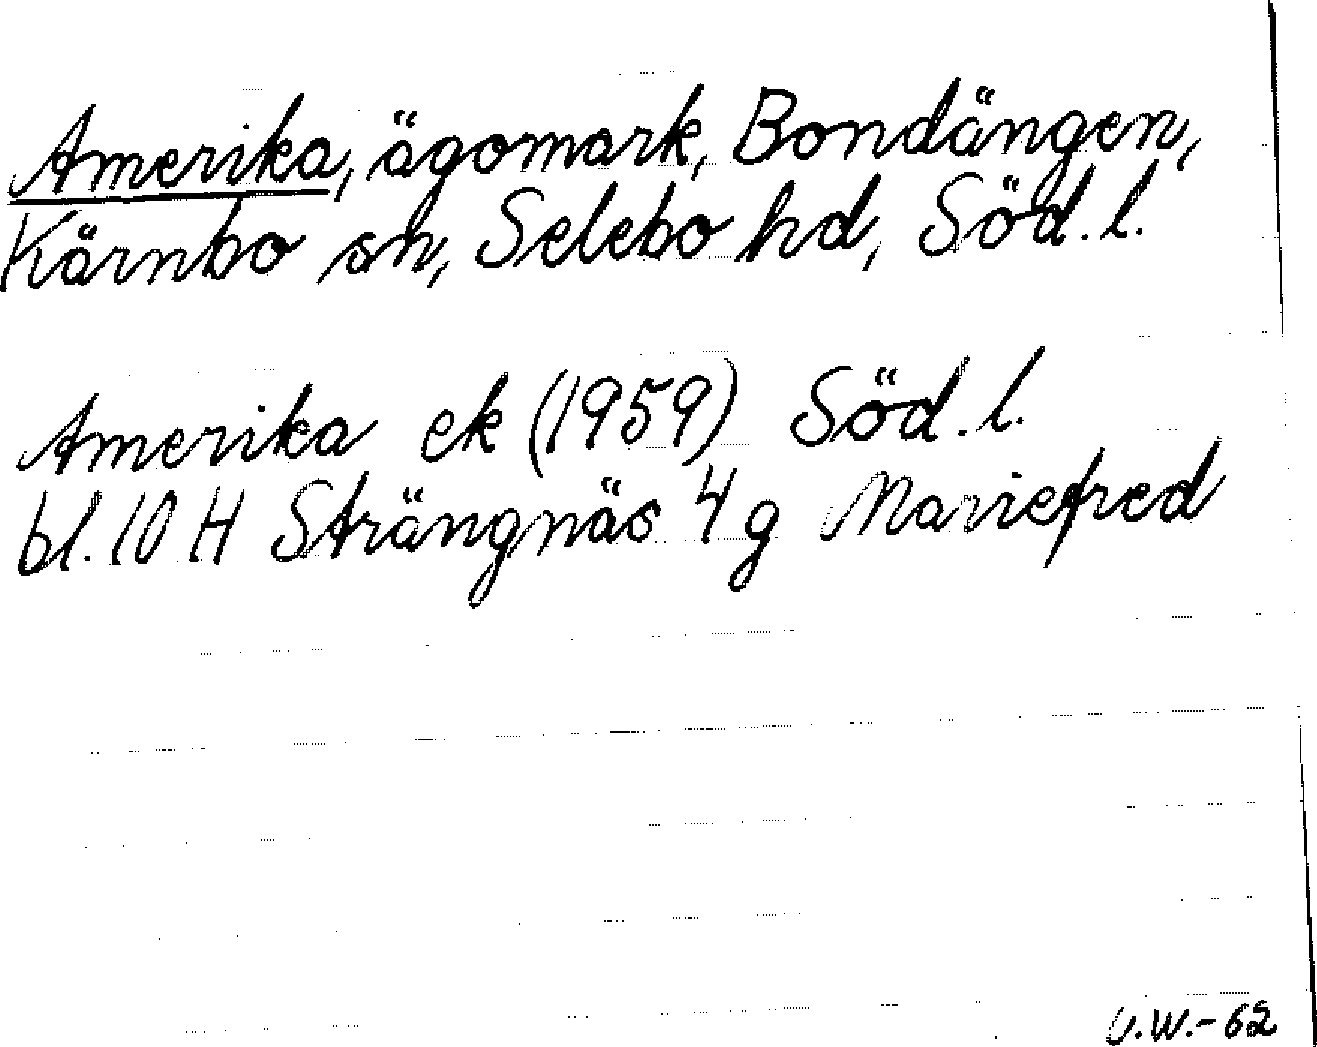 Amerika, ägomark, Bondängen,
Kärnbo sn, Selebo hd, Söd. l.
Amerika ek (1959) Söd. l.
bl. 10 H Strängnäs 4 g Mariefred
U.W.-62